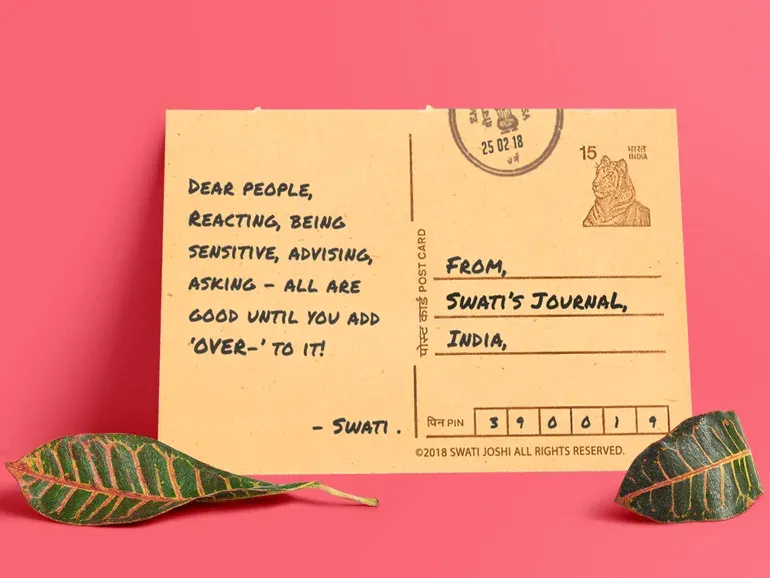 DEAR PEOPLE,
REACTING, BEING
SENSITIVE, ADVISING,
ASKING – ALL ARE
GOOD UNTIL YOU ADD
'OVER–' TO IT!
– SWATI .
25 02 18
15 भारत
INDIA
पोस्ट कार्ड POST CARD
FROM,
SWATI'S JOURNAL,
INDIA,
पिन PIN 390019
©2018 SWATI JOSHI ALL RIGHTS RESERVED.